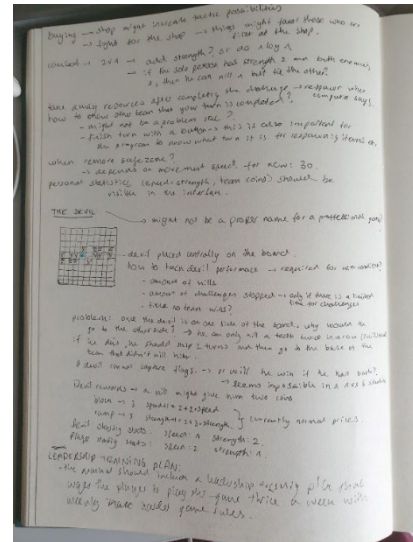 buying → shop might increase tactic possibilities
→ fight for the shop → things might favor those who are first at the shop.
combat → 2v1 → add strength? or do 1 by 1
→ if the solo person had strength 2 and both enemies, 2, then he can kill 1 but tie the other.
take away resources after completing the challenge → respawn when
how to show other team that your turn is completed? computer says.
- might not be a problem
- finish turn with a button → this is also important for
the program to know what turn it is for respawning items etc.
when remove safezone?
→ depends on movement speed. for now: 30.
personal statistics (speed, strength, team coins) should be
visible in the interface.
THE DEVIL
→ might not be a proper name for a professional game
- devil placed centrally on the board.
how to track devil performance → required for win condition?
- amount of kills
- amount of challenges stopped → only if there is a limited time for challenges
- time no team wins?
problem: once the devil is on one side of the board, why would he
go to the other side? → he can only kill a team twice in a row
if he does, he should skip 2 turns and then go to the base of the
team that didn't kill him.
devil cannot capture flags. → or will he win if he has both?
→ seems impossible in a
Devil rewards → a kill might give him two coins
→ 3 speed = 2+2+speed
→ 3 strength = 2+3+strength
} currently normal prices
Devil starting stats: speed: 1 strength: 2.
Player starting stats: speed: 2 strength: 1.
LEADERSHIP TRAINING PLAN:
- the manual should include a leadership training plan that
the players to play this game thrice a week with
weekly game rules.